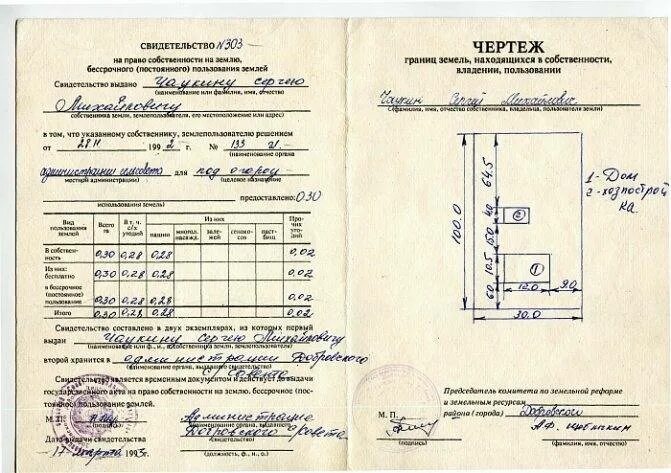 СВИДЕТЕЛЬСТВО №303
на право собственности на землю,
бессрочного (постоянного) пользования землей
Свидетельство выдано Чаукину Сергею
(наименование или фамилия, имя, отчество
Михайловичу
собственника земли, землепользователя, его местоположение или адрес)
в том, что указанному собственнику, землепользователю решением
от 28 11 1992 г. № 133
(наименование органа
администрации сельсовета для под огород
местной администрации) (целевое назначение)
предоставлено: 0,30
использования земель)
Вид пользования землей Всего га В т. ч. с/х угодий Из них Прочих угодий
пашни многол. насажд. залежей сенокосов пастбищ
В собственность 0,30 0,28 0,28 0,02
Из них: бесплатно 0,30 0,28 0,28 0,02
в бессрочное (постоянное) пользование 0,30 0,28 0,28 0,02
Итого 0,30 0,28 0,28 0,02
Свидетельство составлено в двух экземплярах, из которых первый
выдан Чаукину Сергею Михайловичу
(наименование или ф., и., о. собственника, землепользователя)
второй хранится в администрации Добровского
(наименование органа, выдавшего свидетельство)
с/совета
Свидетельство является временным документом и действует до выдачи
государственного акта на право собственности на землю, бессрочное (постоянное) пользование землей.
М. П. Администрация
Добровского совета
(должность, ф., и., о.)
Дата выдачи свидетельства
17 марта 1993г.
ЧЕРТЕЖ
границ земель, находящихся в собственности,
владении, пользовании
Чаукин Сергей Михайлович
(фамилия, имя, отчество собственника, владельца, пользователя земли)
1- Дом
2-хозпостройка
64.5
4.0
②
15.0
100.0
10.5
①
6.0
12.0
9.0
30.0
Председатель комитета по земельной реформе
и земельным ресурсам
М. П. района (города) Добровский
А.Ф.
(подпись) (фамилия, имя, отчество)